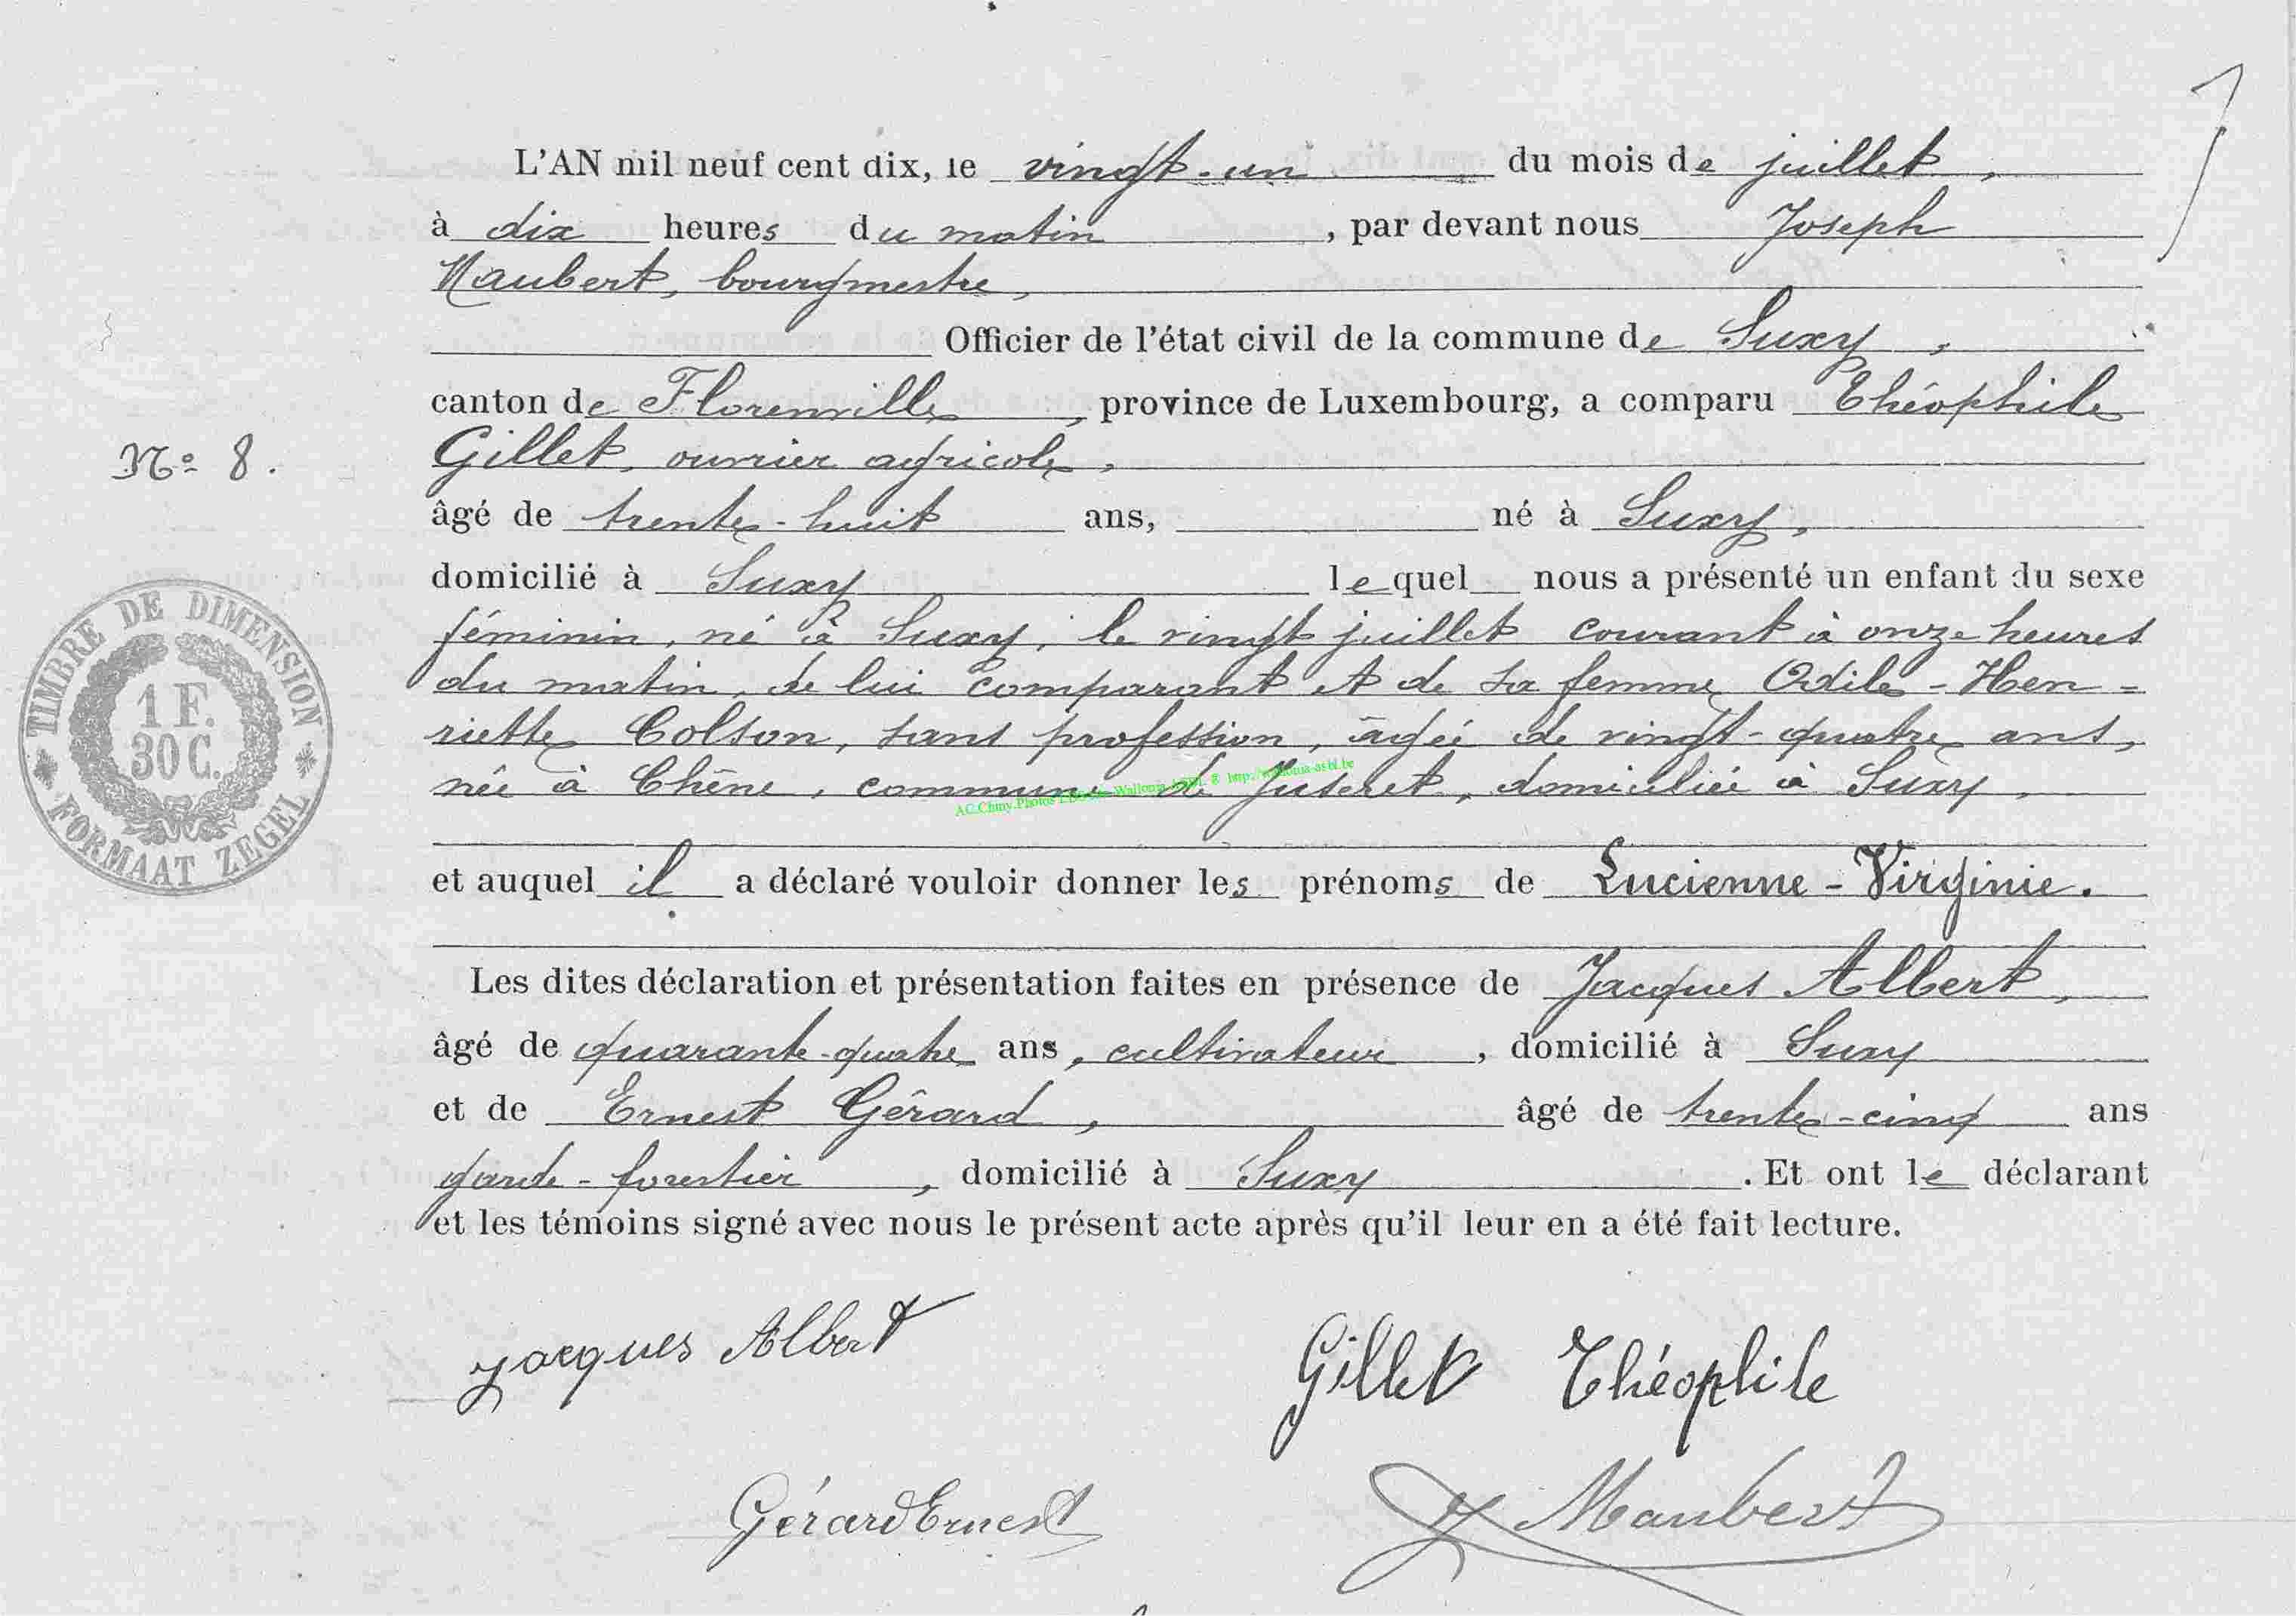 L'AN mil neuf cent dix, le vingt-un du mois de juillet,
à dix heures du matin, par devant nous Joseph
Maubert, bourgmestre,
Officier de l'état civil de la commune de Suxy,
canton de Florenville, province de Luxembourg, a comparu Théophile
Gillet, ouvrier agricole,
Nº 8.
âgé de trente-huit ans, né à Suxy,
domicilié à Suxy lequel nous a présenté un enfant du sexe
féminin, né à Suxy, le vingt juillet courant à onze heures
du matin, de lui comparant et de sa femme Odile-Hen-
riette Colson, sans profession, âgée de vingt-quatre ans,
née à Chêne, commune de Juseret, domiciliée à Suxy,
et auquel il a déclaré vouloir donner les prénoms de Lucienne-Virginie.
Les dites déclaration et présentation faites en présence de Jacques Albert,
âgé de quarante-quatre ans, cultivateur, domicilié à Suxy
et de Ernest Gérard, âgé de trente-cinq ans
garde-forestier, domicilié à Suxy. Et ont le déclarant
et les témoins signé avec nous le présent acte après qu'il leur en a été fait lecture.
TIMBRE DE DIMENSION
1 F.
30 C.
FORMAAT ZEGEL
Jacques Albert
Gillet Théophile
Gérard Ernest
J Maubert